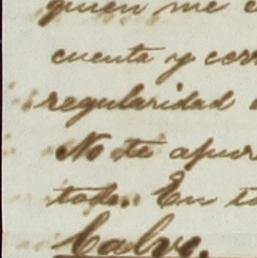 quien me e
cuenta y corr
regularidad
No te apur
todo. En to
Calvo.